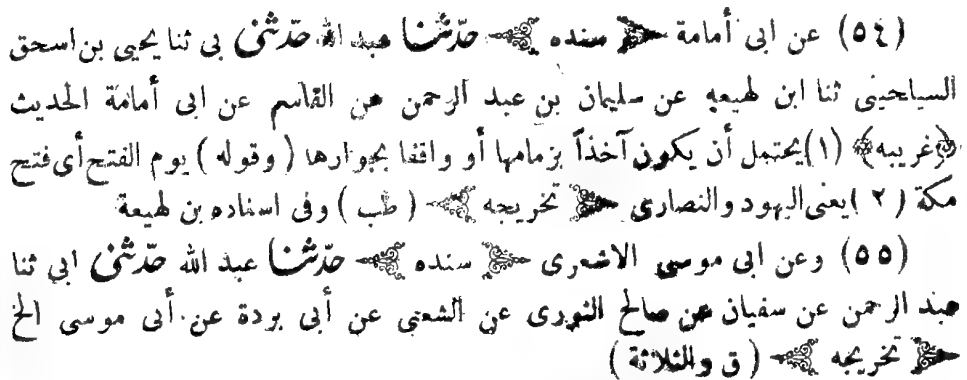 (٥٤) عن ابى أمامة ﴿ سنده ﴾ حدّثنا عبد الله حدّثنى بى ثنا يحيى بن اسحق
السياحينى ثنا ابن لهيعه عن سليمان بن عبد الرحمن عن القاسم عن ابى أمامة الحديث
﴿غريبه﴾ (١) يحتمل أن يكون آخذاً بزمامها أو واقفا بجوارها ( وقوله ) يوم الفتح أى فتح
مكة ( ٢ ) يعنى اليهود والنصارى ﴿ تخريجه ﴾ ( طب ) وفى اسناده بن لهيعة
(٥٥) وعن ابى موسى الاشعرى ﴿ سنده ﴾ حدّثنا عبد الله حدّثنى ابى ثنا
عبد الرحمن عن سفيان عن صالح الثورى عن الشعبى عن أبى بردة عن أبى موسى الخ
﴿ تخريجه ﴾ ( ق والثلاثة )